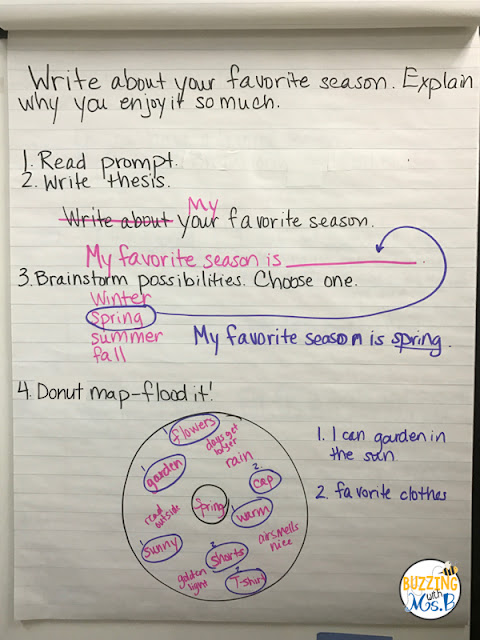 Write about your favorite season. Explain
why you enjoy it so much.
1. Read prompt.
2. Write thesis.
My
Write about your favorite season.
My favorite season is ____________.
3. Brainstorm possibilities. Choose one.
winter
spring
summer
fall
My favorite season is spring.
4. Donut map-flood it!
1. flowers
days get
longer
rain
1. garden
2. cap
read
outside
Spring
1. warm
1. sunny
2. shorts
air smells
nice
golden
light
2. T-shirt
1. I can garden in
the sun
2. favorite clothes
BUZZING
with
Ms. B